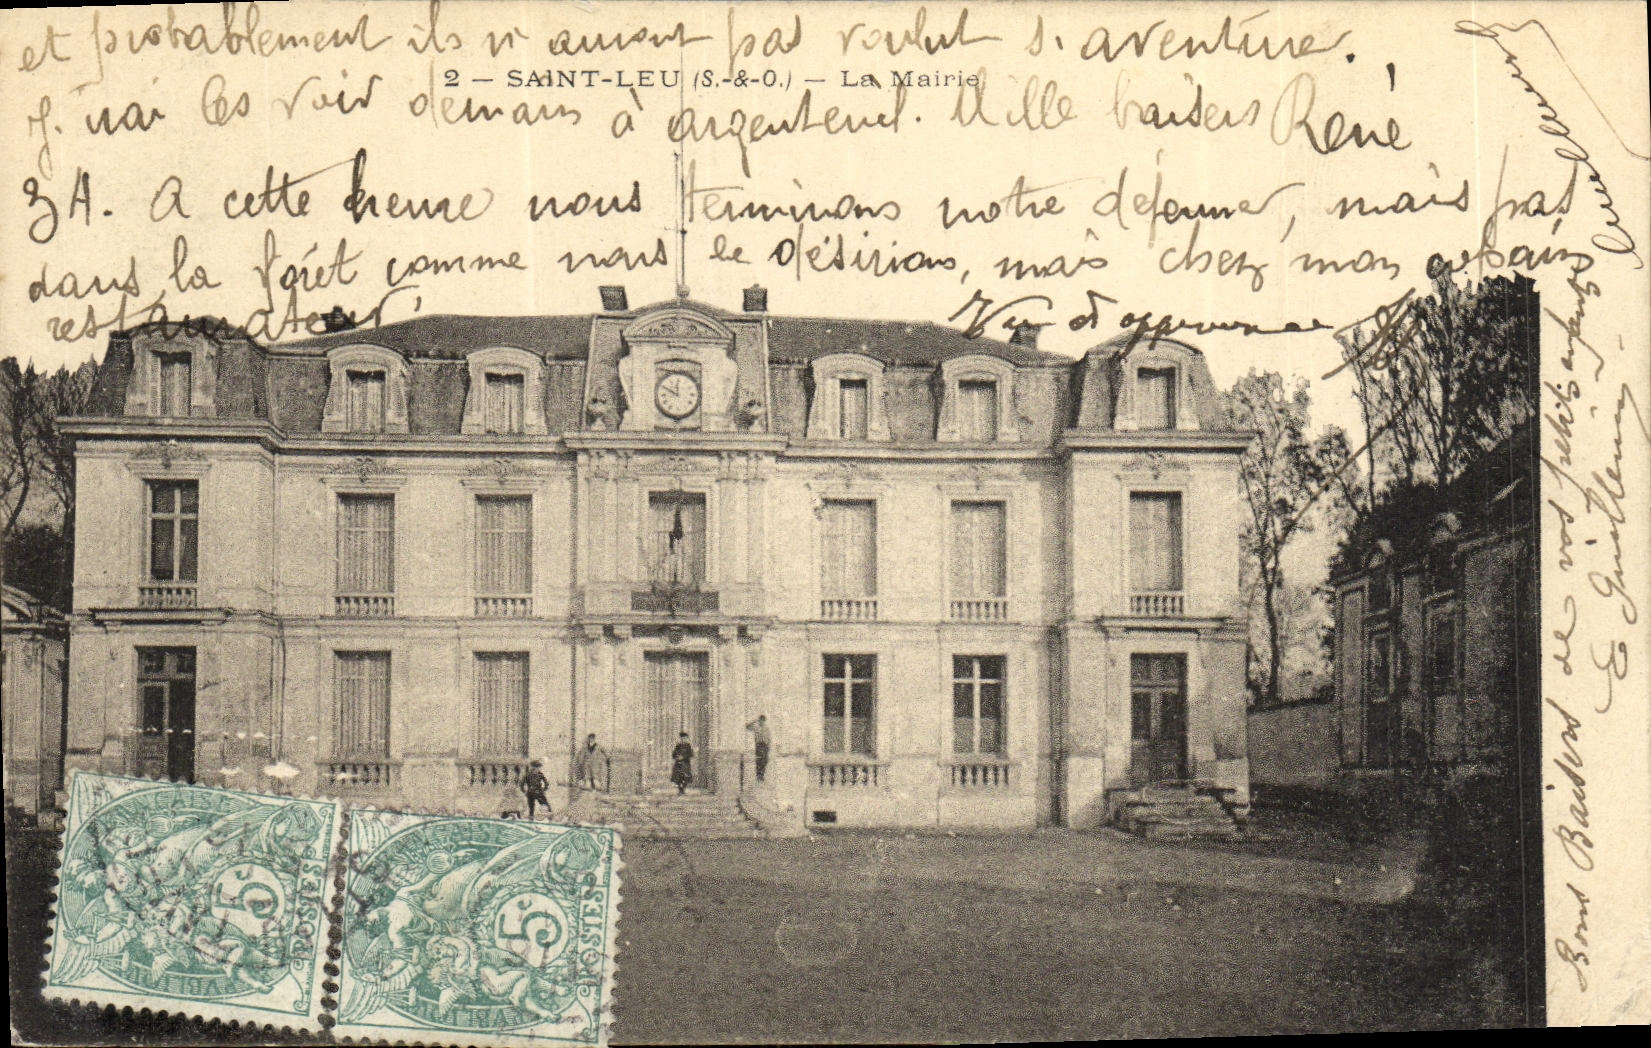 et probablement ils n'auront pas voulut s'aventurer.
2 — SAINT-LEU (S.-&-O.) — La Mairie
J'irai les voir demain à argenteuil. Mille baisers René
A cette heure nous terminons notre déjeuner, mais pas
dans la forêt comme nous le désirions, mais chez mon copain
restaurateur
Vu et
Bons Baisers de vos petits enfants
E Guillemin
FRANÇAISE
5c
POSTES
FRANÇAISE
5c
POSTES